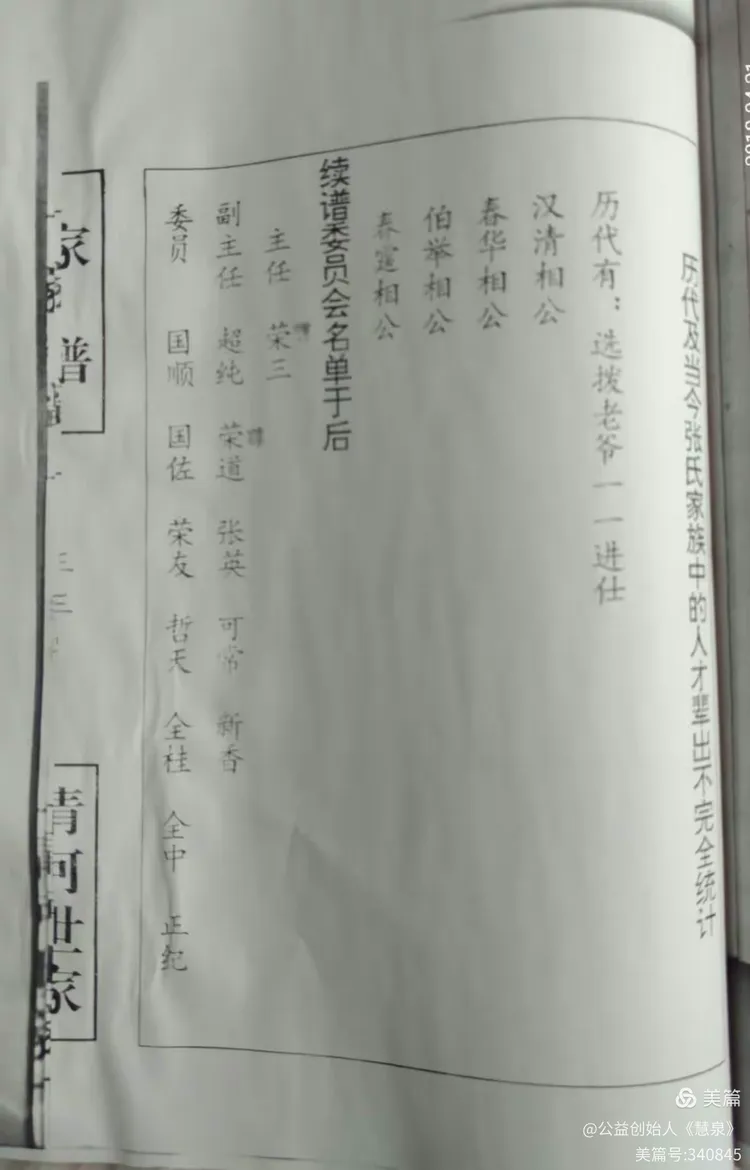 历代及当今张氏家族中的人才辈出不完全统计
历代有：选拨老爷一一进仕
汉清相公
春华相公
伯举相公
春霆相公
续谱委员会名单于后
主任 荣三
副主任 超纯 荣道 张英 可常 新香
委员 国顺 国佐 荣友 哲天 全桂 全中 正纪
家谱
清河世家
美篇
@公益创始人《慧泉》
美篇号:340845